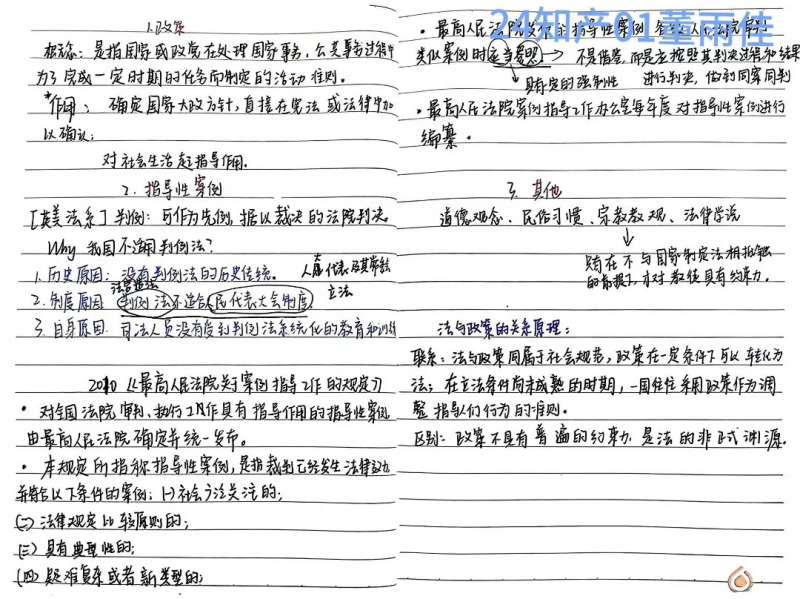 1.政策
概念：是指国家或政党在处理国家事务、公共事务过程中
为了完成一定时期的任务而制定的活动准则。
*作用：确定国家大政方针，直接在宪法或法律中加
以确认；
对社会生活起指导作用。
2.指导性案例
[英美法系]判例：可作为先例，据以裁决的法院判决。
Why 我国不适用判例法？
1.历史原因：没有判例法的历史传统。
法官造法
2.制度原因 判例法不适合人民代表大会制度。
人大代表及其常委
立法
3.自身原因.司法人员没有受到判例法系统化的教育和训练
2010《最高人民法院关于案例指导工作的规定》
·对全国法院审判、执行工作具有指导作用的指导性案例
由最高人民法院确定并统一发布。
·本规定所指称指导性案例，是指裁判已经发生法律效力
并符合以下条件的案例：(一)社会广泛关注的；
(二)法律规定比较原则的；
(三)具有典型性的；
(四)疑难复杂或者新类型的；
24知产01董雨佳
·最高人民法院发布的指导性案例 各级人民法院审判
类似案例时应当参照 → 不是借鉴，而是主按照其判决过程和结果
具有一定的强制性 进行判决，做到同案同判
·最高人民法院案例指导工作办公室每年度对指导性案例进行
编纂。
3.其他
道德观念、民俗习惯、宗教教规、法律学说
只有在不与国家制定法相抵触
的前提下，才对教徒具有约束力。
法与政策的关系原理：
联系：法与政策同属于社会规范，政策在一定条件下可以转化为
法；在立法条件尚未成熟的时期，一国往往采用政策作为调
整指导人们行为的准则。
区别：政策不具有普遍的约束力，是法的非正式渊源。